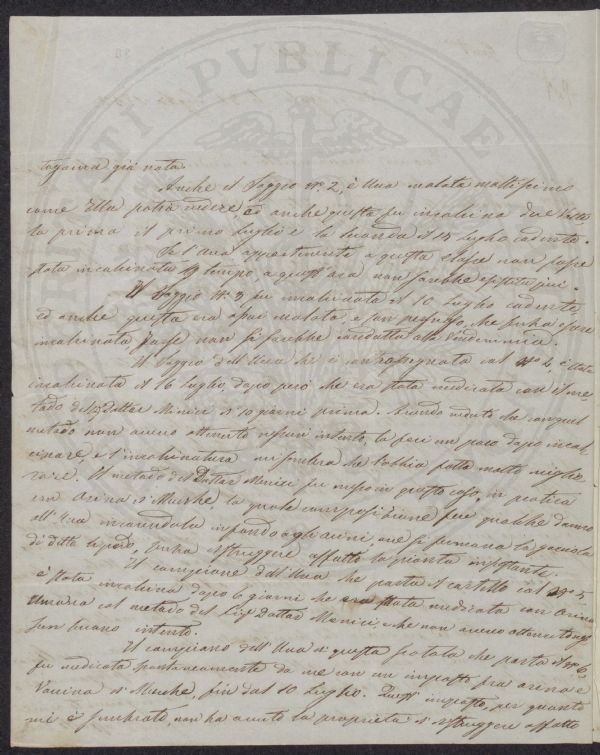 PUBLICAE
togama già nota.
Anche il Saggio N° 2, è Uva malata moltissimo
come Ella potrà vedere, ed anche questa fu incalcina due volte
la prima il primo Luglio e la seconda il 15 Luglio cadente.
Se l'Uva appartenente a questa classe non fosse
stata incalcinata tempo a quest'ora non sarebbe
Il Saggio N° 3 fu incalcinata il 10 Luglio cadente,
ed anche questa era assai malata e che senza essere
incalcinata forse non si sarebbe condotta alla Vendemmia.
Il Saggio dell'Uva che è contrassegnata col N° 4, è stata
incalcinata il 16 Luglio, dopo però che era stata medicata con il me-
todo del Dottor Monici 10 giorni prima. Avendo veduto che con quel
metodo non aveva ottenuto nessun intento, la feci un poco dopo incal-
cinare, e l'incalcinatura mi sembra che l'abbia fatta molto miglio-
rare. Il metodo del Dottor Monici fu messo in questo caso, in pratica
con Orina e Murche la quale composizione fece qualche danno
all'Uva incavandola in fondo agli acini, ove si fermava la gocciola
di detto liquido, senza distruggere affatto la pianta
Il campione dell'Uva che porta il cartello col N° 5
è stata incalcina dopo 6 giorni che era stata medicata con Orina
umana col metodo del Sig. Dottor Monici, e che non aveva ottenuto
un buono intento.
Il campione dell'Uva di questa che porta N° 6,
fu medicata spontaneamente da me con un impasto fra arena e
di Murche, fin dal 10 Luglio. Quest'impasto, per quanto
mi è sembrato, non ha avuto la proprietà di distruggere affatto